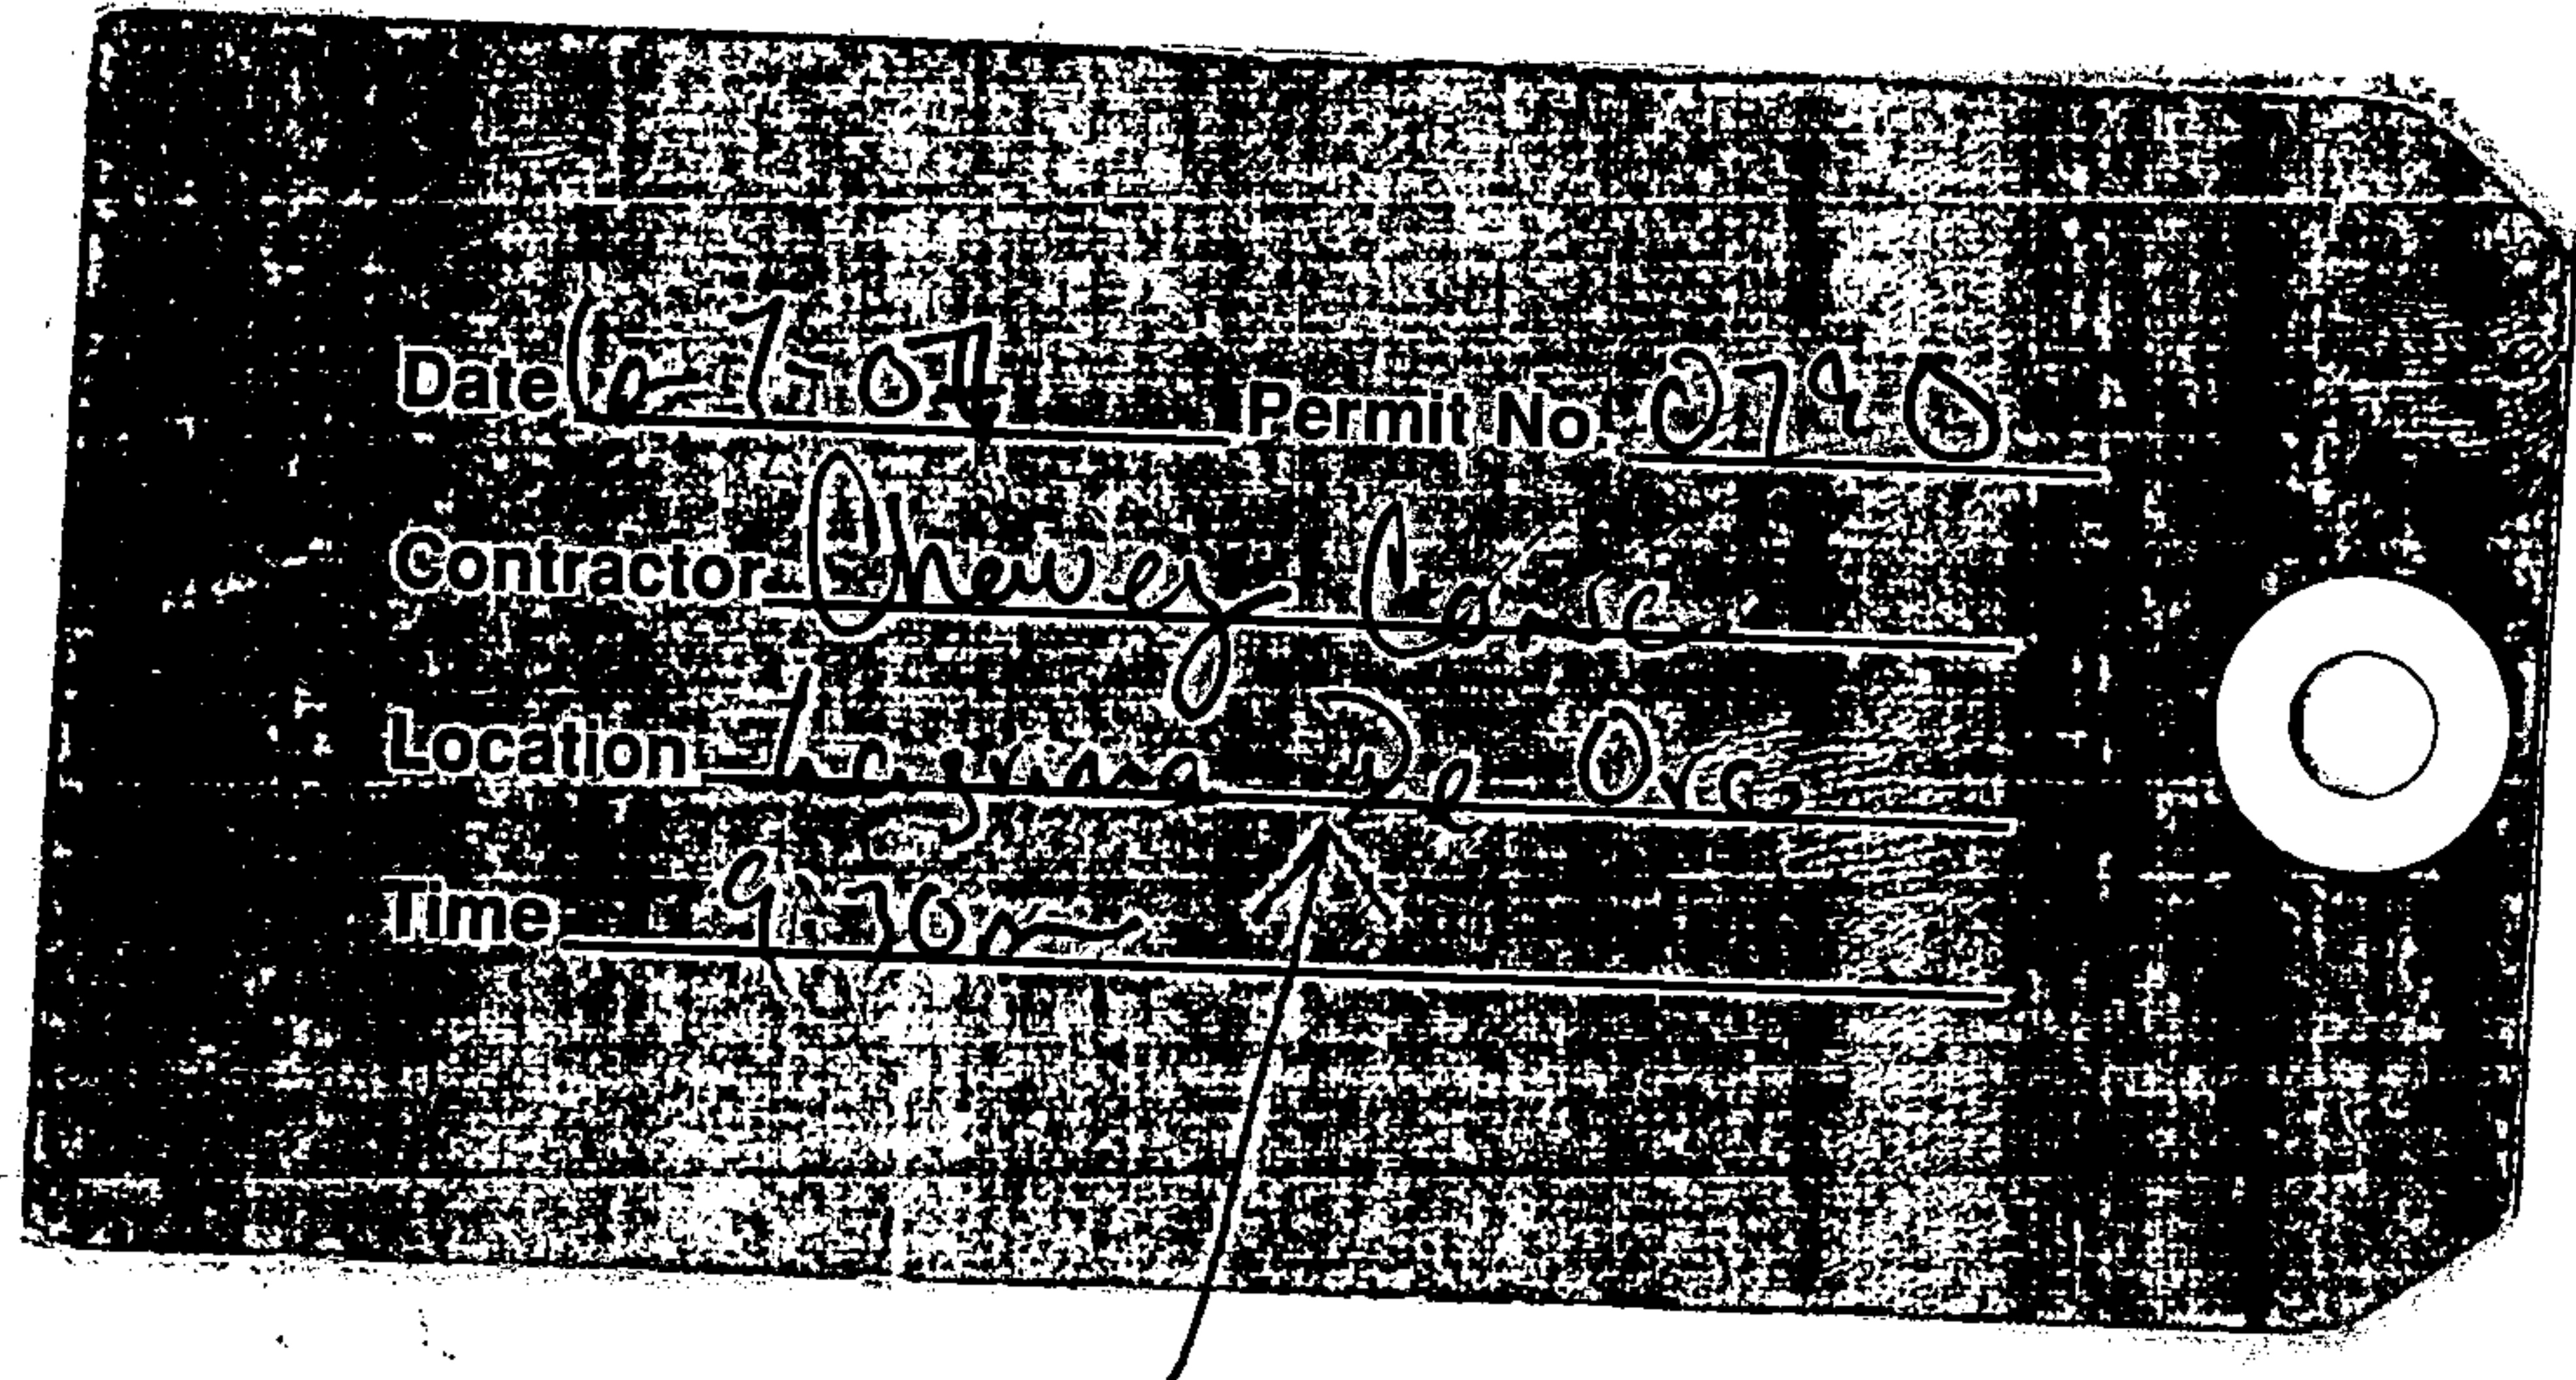 Date 6-7-04 Permit No. 0790
Contractor Chewey Const
Location Laguna De Oro
Time 9:30